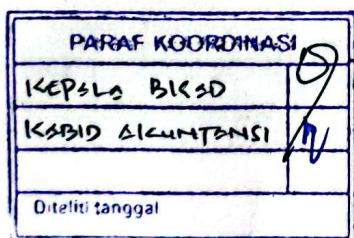 PARAF KOORDINASI
KEPALA BKAD
KABID AKUNTANSI
Diteliti tanggal